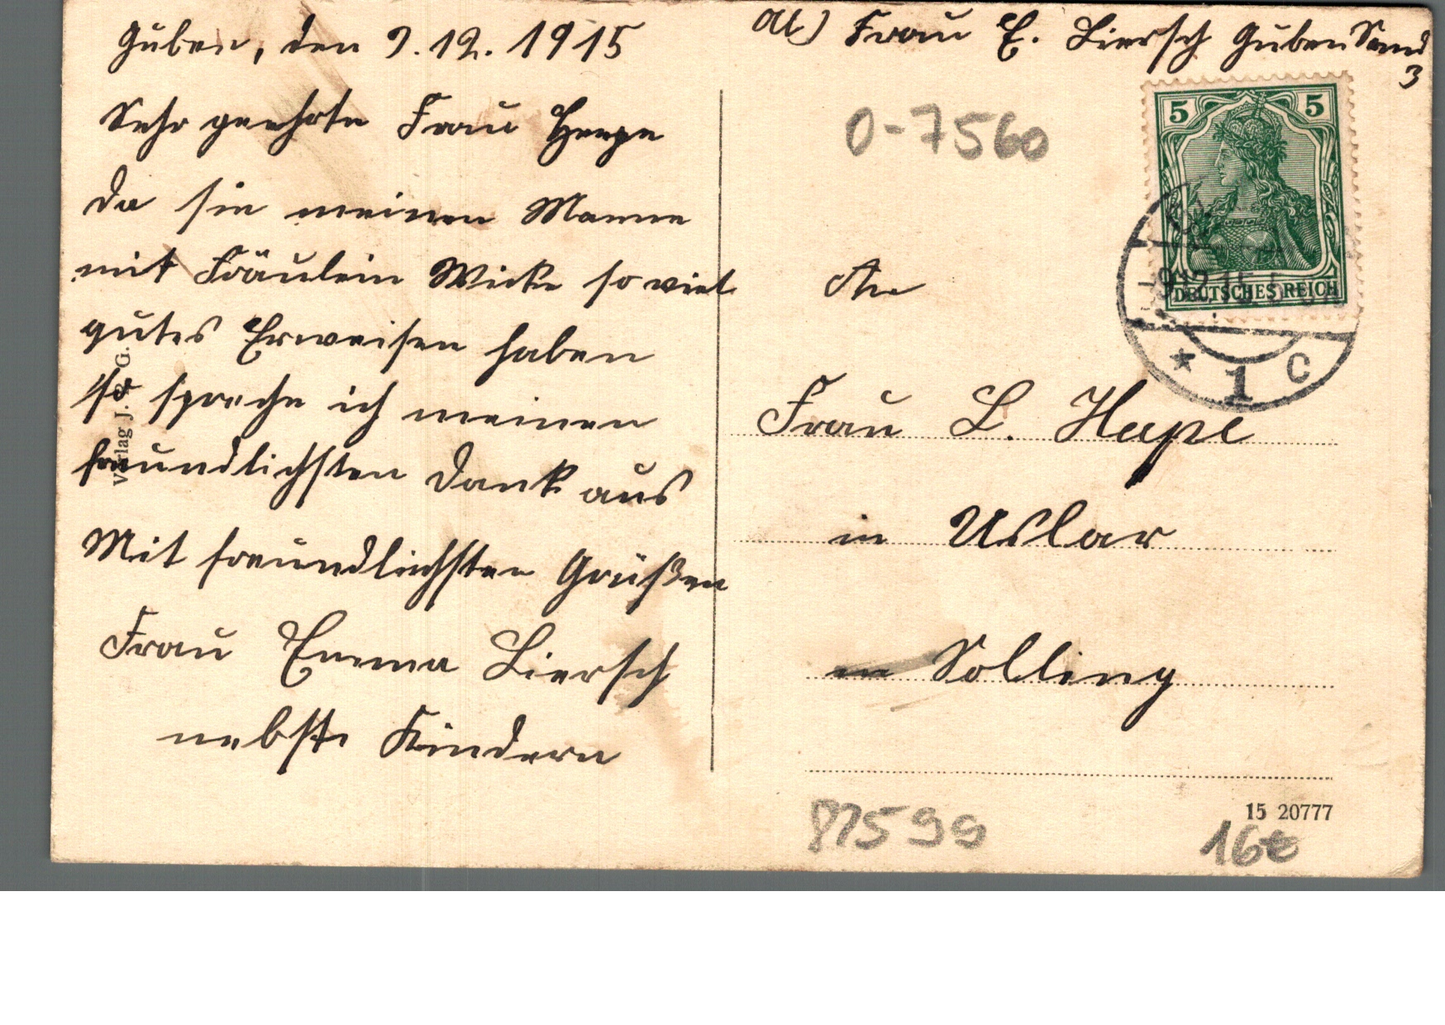 Guben, den 9.12.1915
Sehr geehrte Frau Heepe
da sie meinen Manne
mit Fräulein Wicke so viel
gutes Erweisen haben
so spreche ich meinen
freundlichsten Dank aus
Mit freundlichsten Grüßen
Frau Emma Liersch
nebste Kindern
Verlag J. G.
Frau E. Liersch Guben Sand
3
0-7560
5 5
DEUTSCHES REICH
9.12.15
* 1 C
An
Frau L. Hepe
in Uslar
in Solling
15 20777
87599
16€